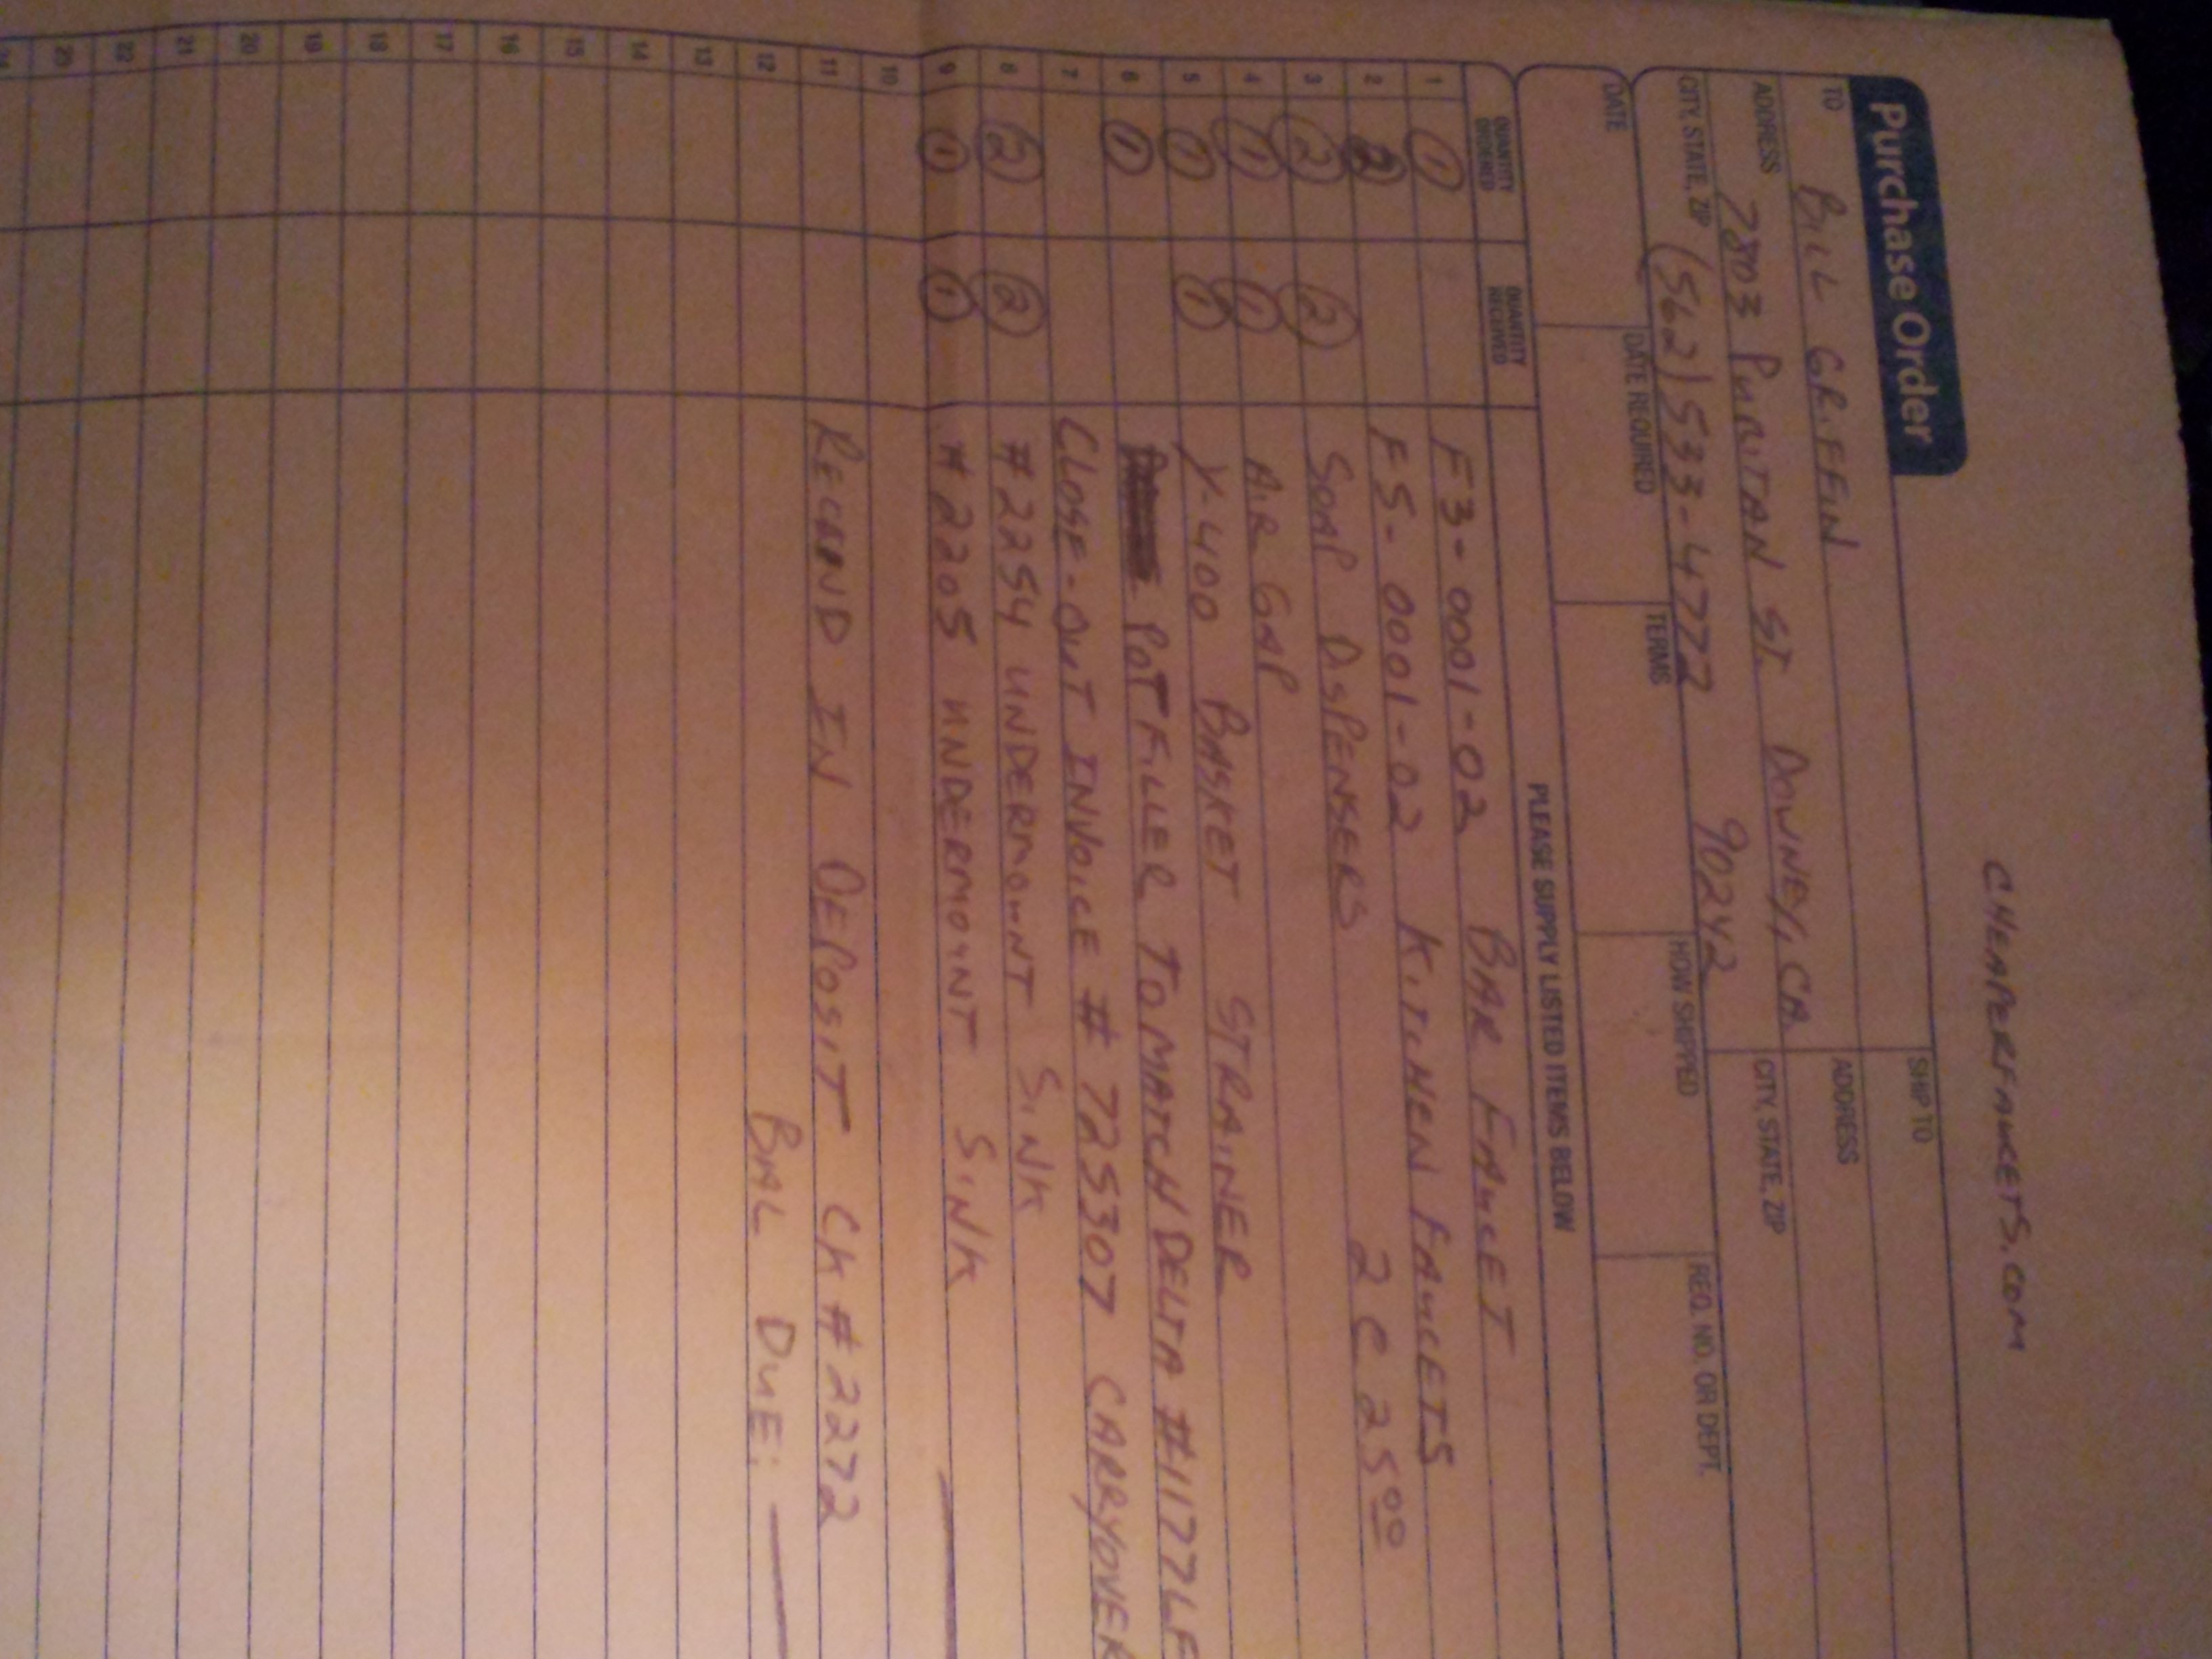 CHEAPERFAUCETS.COM
Purchase Order
TO BILL GRIFFIN
SHIP TO
ADDRESS 7803 PURITAN ST. DOWNEY, CA
ADDRESS
CITY, STATE, ZIP (562) 533-4777 90242
CITY, STATE, ZIP
DATE DATE REQUIRED TERMS HOW SHIPPED REQ. NO. OR DEPT.
PLEASE SUPPLY LISTED ITEMS BELOW
QUANTITY ORDERED QUANTITY RECEIVED
1 1 F3-0001-02 BAR FAUCET
2 2 FS-0001-02 KITCHEN FAUCETS
3 2 2 SOAP DISPENSERS 2 @ 25 00
4 1 1 AIR GAP
5 1 1 Y-400 BASKET STRAINER
6 1 POT FILLER TO MATCH DELTA #1177LF
7 CLOSE-OUT INVOICE # 725307 CARRYOVER
8 2 2 #2254 UNDERMOUNT SINK
9 1 1 #2205 UNDERMOUNT SINK
10
11 IN DEPOSIT CK #2272
12 BAL DUE:
13
14
15
16
17
18
19
20
21
22